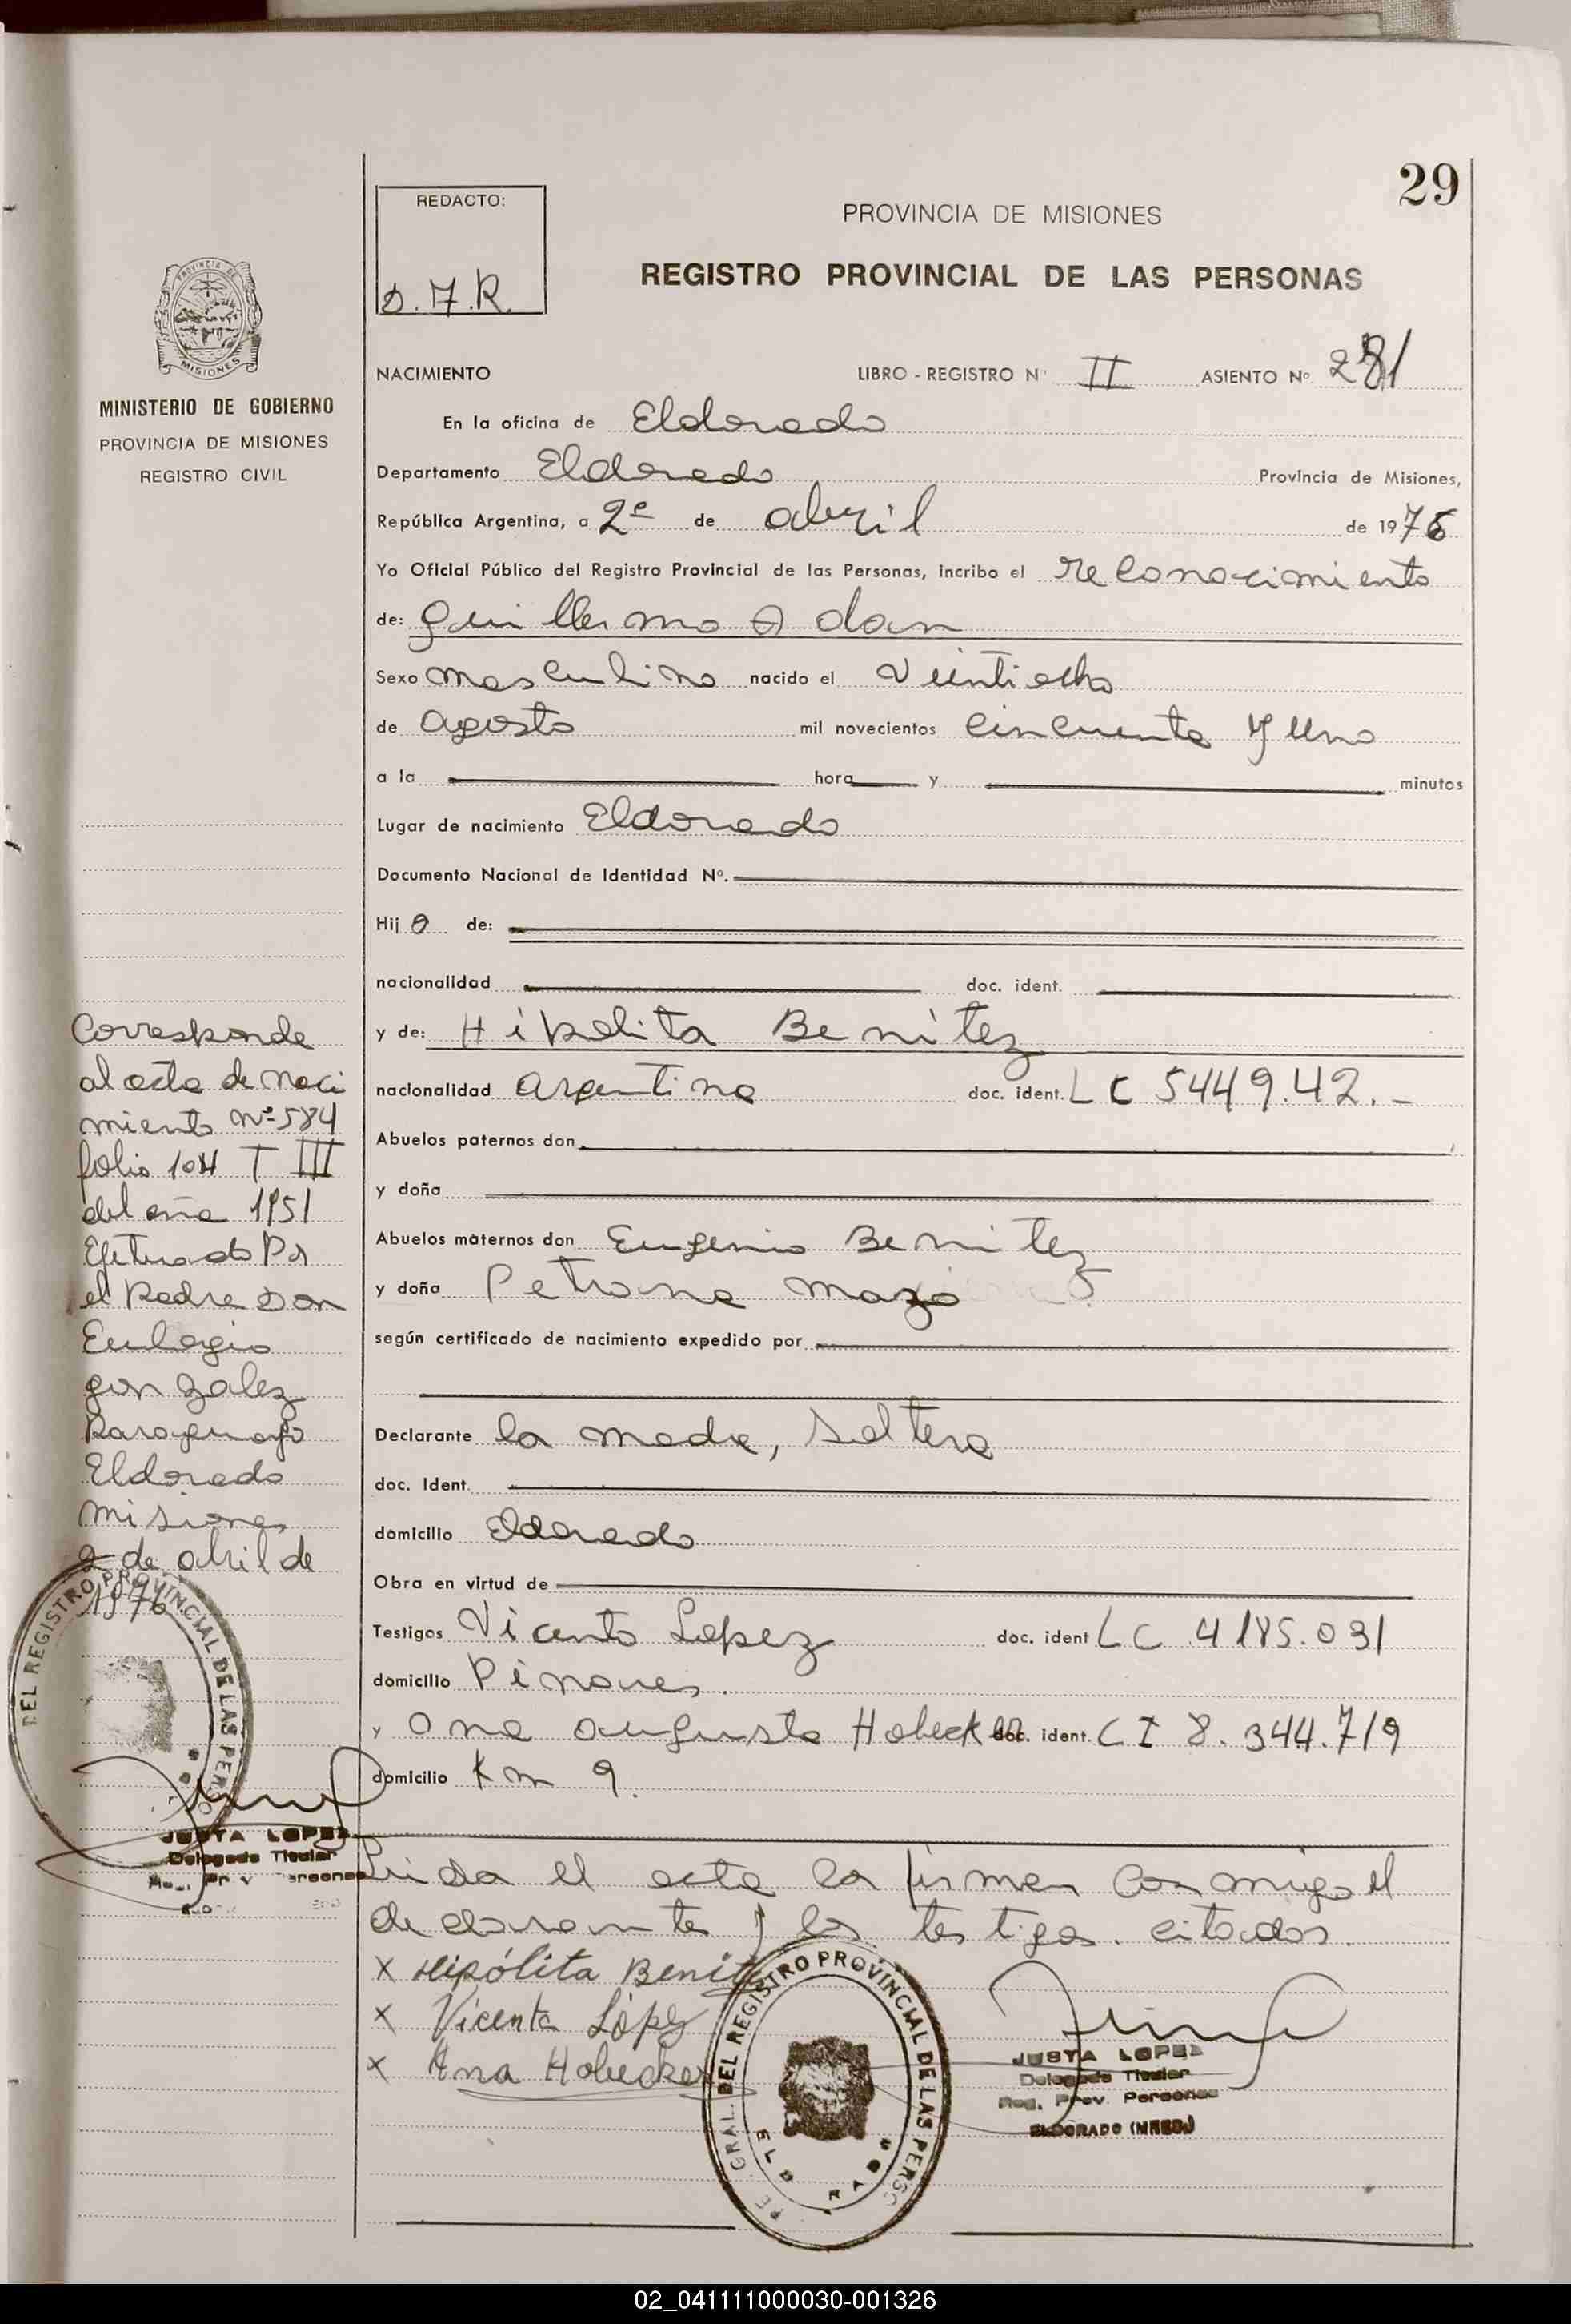 29
REDACTO:
D.M.R.
PROVINCIA DE MISIONES
REGISTRO PROVINCIAL DE LAS PERSONAS
PROVINCIA DE
MISIONES
MINISTERIO DE GOBIERNO
PROVINCIA DE MISIONES
REGISTRO CIVIL
NACIMIENTO LIBRO - REGISTRO Nº II ASIENTO Nº 281
En la oficina de Eldorado
Departamento Eldorado Provincia de Misiones,
República Argentina, a 2º de abril de 1976
Yo Oficial Público del Registro Provincial de las Personas, incribo el reconocimiento
de: Guillermo Adan
Sexo masculino nacido el Veintiocho
de agosto mil novecientos cincuenta y uno
a la hora y minutos
Lugar de nacimiento Eldorado
Documento Nacional de Identidad Nº.
Hijo de:
nacionalidad doc. ident.
y de: Hipolita Benitez
nacionalidad argentina doc. ident. LC 5449.42.-
Abuelos paternos don
y doña
Abuelos maternos don Eugenio Benitez
y doña Petrona Mazo
según certificado de nacimiento expedido por
Declarante la madre, soltera
doc. Ident.
domicilio Eldorado
Obra en virtud de
Testigos Vicenta Lopez doc. ident LC 4185.031
domicilio Pinares.
y Ana Augusta Hobecker doc. ident. CI 8.344.719
domicilio Km 9.
Leida el acta la firman conmigo el
declarante y los testigos citados.
x Hipólita Benitez
x Vicenta López
x Ana Hobecker
Corresponde
al acta de naci
miento Nº 584
folio 104 T III
del año 1951
Efetuado Por
el Padre Don
Eulogio
gonzalez
Paraguayo
Eldorado
Misiones
2 de abril de
1976
DEL REGISTRO PROVINCIAL DE LAS PERSO
JUSTA LOPEZ
Delegada Titular
GRAL. DEL REGISTRO PROVINCIAL DE LAS PERSO
JUSTA LOPEZ
Delegada Titular
Reg. Prov. Personas
ELDORADO (MNES)
02_041111000030-001326